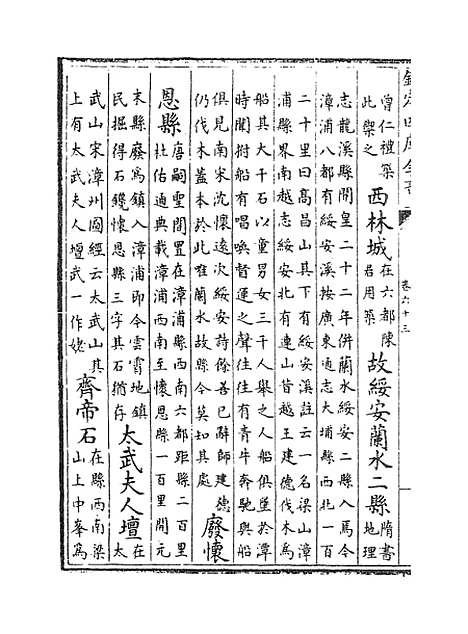 欽定四庫全書 卷六十三
曾仁禮築
此禦之
西林城
在六都陳
君用築
故綏安蘭水二縣
隋書
地理
志龍溪縣開皇二十二年併蘭水綏安二縣入焉今
漳浦八都有綏安溪按廣東通志大埔縣西北一百
二十里曰高昌山其下有綏安溪註云一名梁山漳
浦縣界南越志綏安北有連山昔越王建德伐木為
船其大千石以童男女三千人舉之人船俱墜於潭
時聞拊船有唱喚督運之聲往往有青牛奔馳與船
俱見南宋沈懷遠次綏安詩善已辭師建德
仍伐木蓋本於此唯蘭水故縣今莫知其處
廢懷
恩縣
唐嗣聖間置在漳浦縣西南六都距縣二百里
杜佑通典載漳浦西南至懷恩縣一百里開元
末縣廢為鎮入漳浦即今雲霄地鎮
民掘得石鐫懷恩縣三字其石猶存
太武夫人壇
在
太
武山宋漳州圖經云太武山其
上有太武夫人壇武一作姥
齊帝石
在縣西南梁
山上中峯為